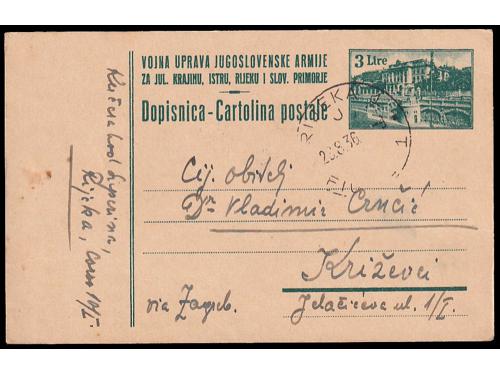 VOJNA UPRAVA JUGOSLOVENSKE ARMIJE
ZA JUL. KRAJINU, ISTRU, RIJEKU I SLOV. PRIMORJE
Dopisnica - Cartolina postale
3 Lire
RIJEKA
1
Cij. obitelj
Dr Vladimir Crnčić
Križevci
Jelačićeva ul. 1/I.
via Zagreb.
Rijeka, Corso